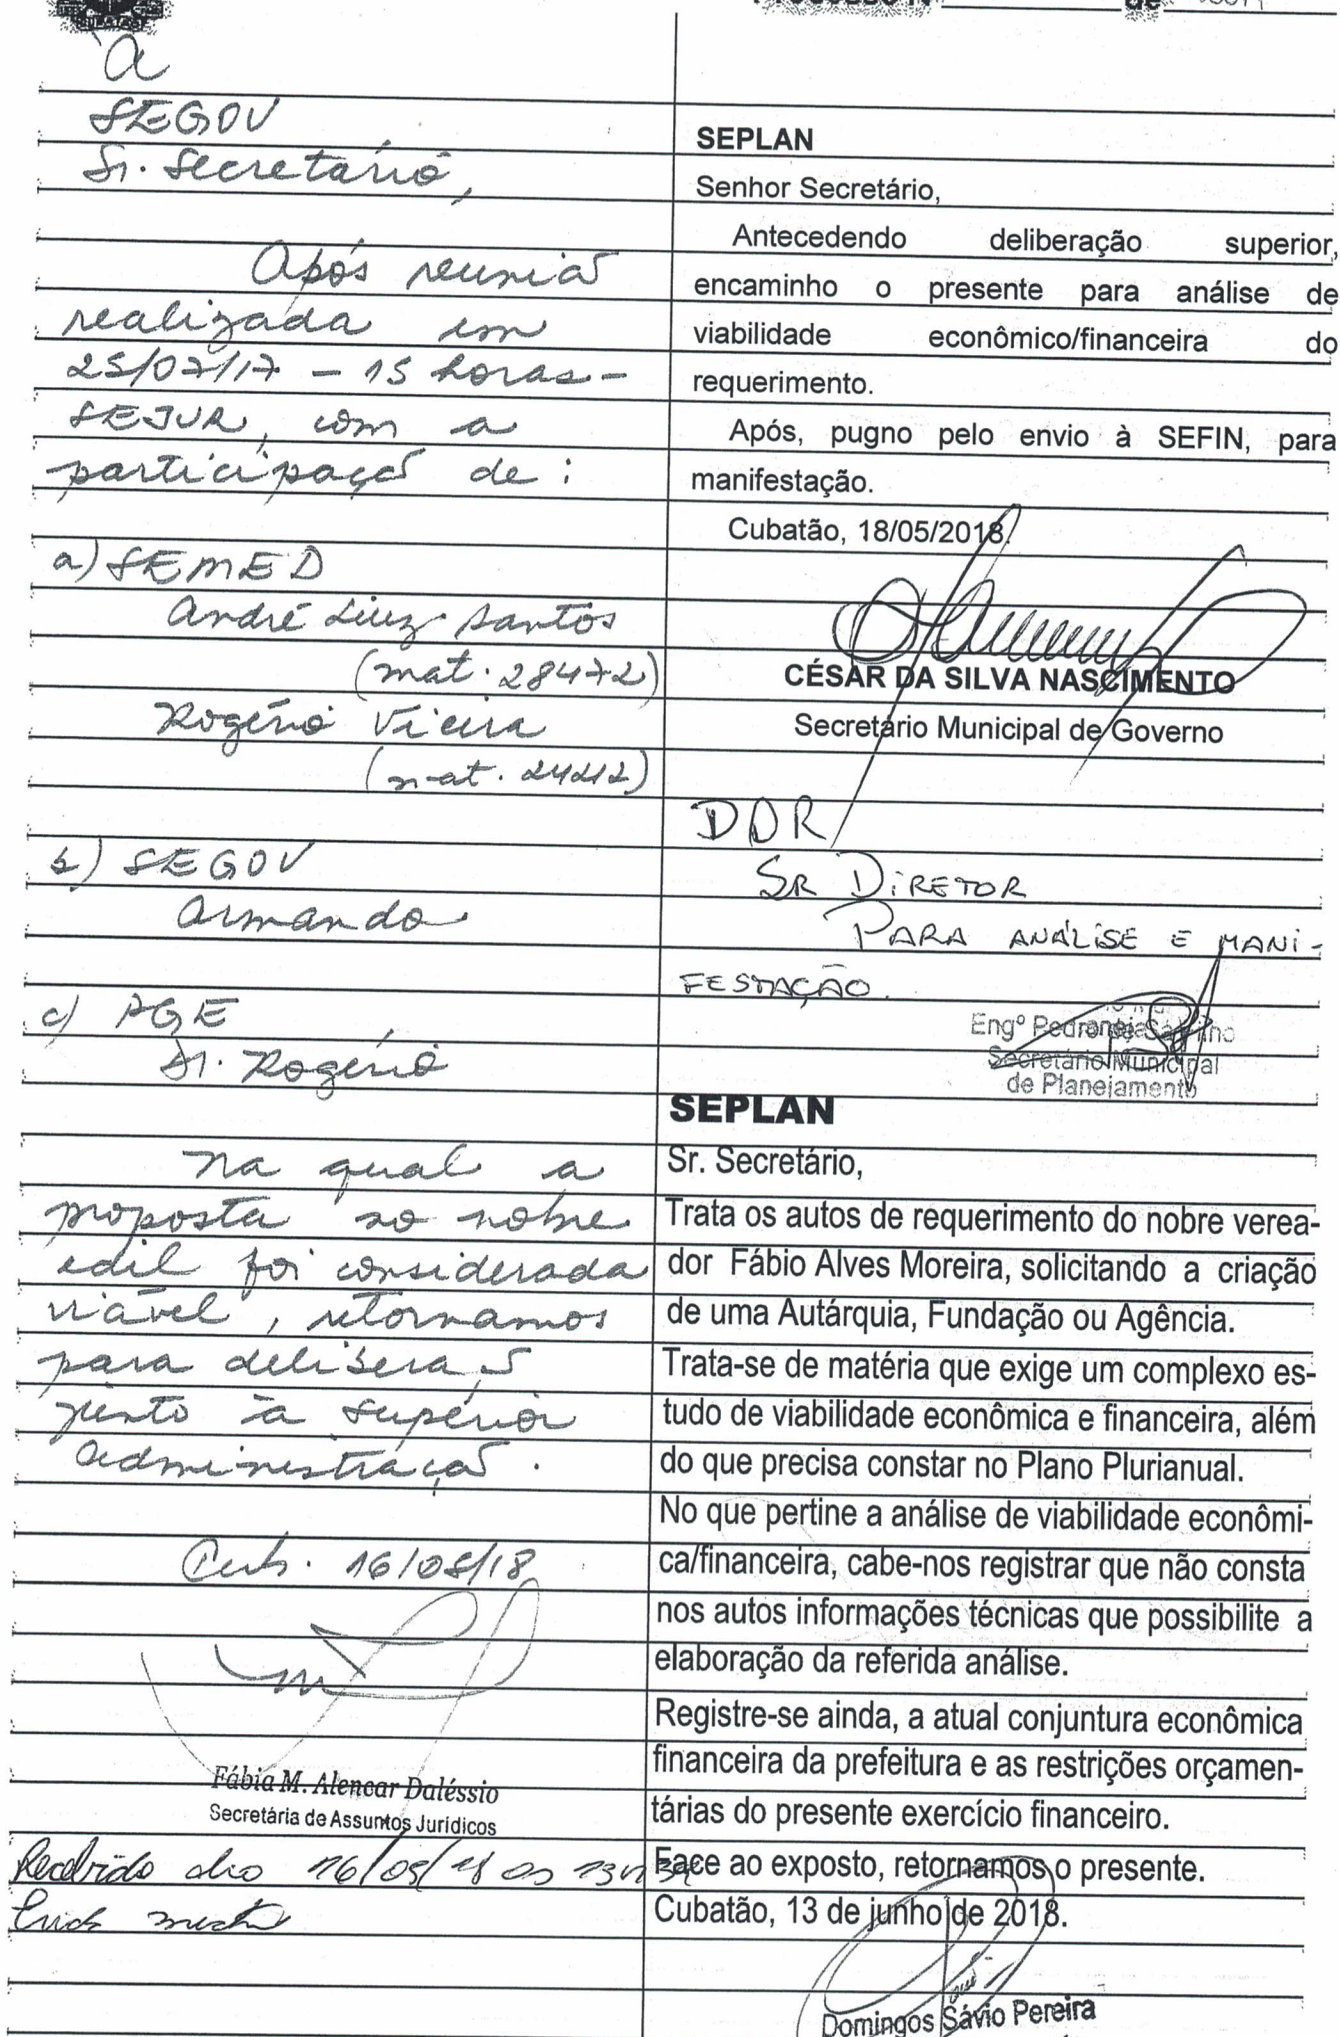 Processo Nº de
À
SEGOV
Sr. Secretário,
Após reunião
realizada em
25/07/17 - 15 horas -
SEJUR, com a
participação de:
a) SEMED
André Luiz Santos
(mat. 28472)
Rogério Vieira
(mat. 24212)
b) SEGOV
Armando
c) PGE
Dr. Rogério
Na qual a
proposta do nobre
edil foi considerada
viável, retornamos
para deliberação
junto à superior
administração.
Cub. 16/05/18
Fábia M. Alencar Daléssio
Secretária de Assuntos Jurídicos
Recebido dia 16/05/18 as
SEPLAN
Senhor Secretário,
Antecedendo deliberação superior,
encaminho o presente para análise de
viabilidade econômico/financeira do
requerimento.
Após, pugno pelo envio à SEFIN, para
manifestação.
Cubatão, 18/05/2018.
CÉSAR DA SILVA NASCIMENTO
Secretário Municipal de Governo
DDR
SR DIRETOR
PARA ANÁLISE E MANI-
FESTAÇÃO.
Engº Pedro
Secretário Municipal
de Planejamento
SEPLAN
Sr. Secretário,
Trata os autos de requerimento do nobre verea-
dor Fábio Alves Moreira, solicitando a criação
de uma Autárquia, Fundação ou Agência.
Trata-se de matéria que exige um complexo es-
tudo de viabilidade econômica e financeira, além
do que precisa constar no Plano Plurianual.
No que pertine a análise de viabilidade econômi-
ca/financeira, cabe-nos registrar que não consta
nos autos informações técnicas que possibilite a
elaboração da referida análise.
Registre-se ainda, a atual conjuntura econômica
financeira da prefeitura e as restrições orçamen-
tárias do presente exercício financeiro.
Face ao exposto, retornamos o presente.
Cubatão, 13 de junho de 2018.
Domingos Sávio Pereira